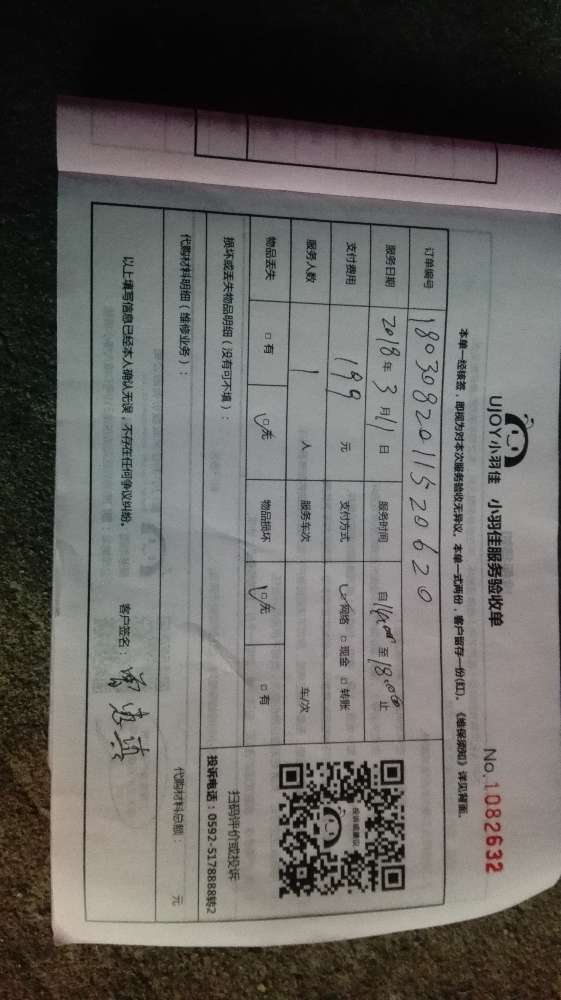 UJOY小羽佳 小羽佳服务验收单 No.1082632
本单一经核签,即视为对本次服务验收无异议。本单一式两份,客户留存一份(红)。《维保须知》详见背面。
订单编号 1803082011520620
服务日期 2018年3月11日 服务时间 自14:00至18:00止
支付费用 199元 支付方式 ☑网络 □现金 □转账
服务人数 1人 服务车次 车/次
物品丢失 □有 ☑无 物品损坏 ☑无 □有
损坏或丢失物品明细(没有可不填):
投诉或建议
扫码评价或投诉
投诉电话:0592-5178888转2
代购材料明细(维修业务): 代购材料总额: 元
以上填写信息已经本人确认无误,不存在任何争议纠纷。 客户签名: